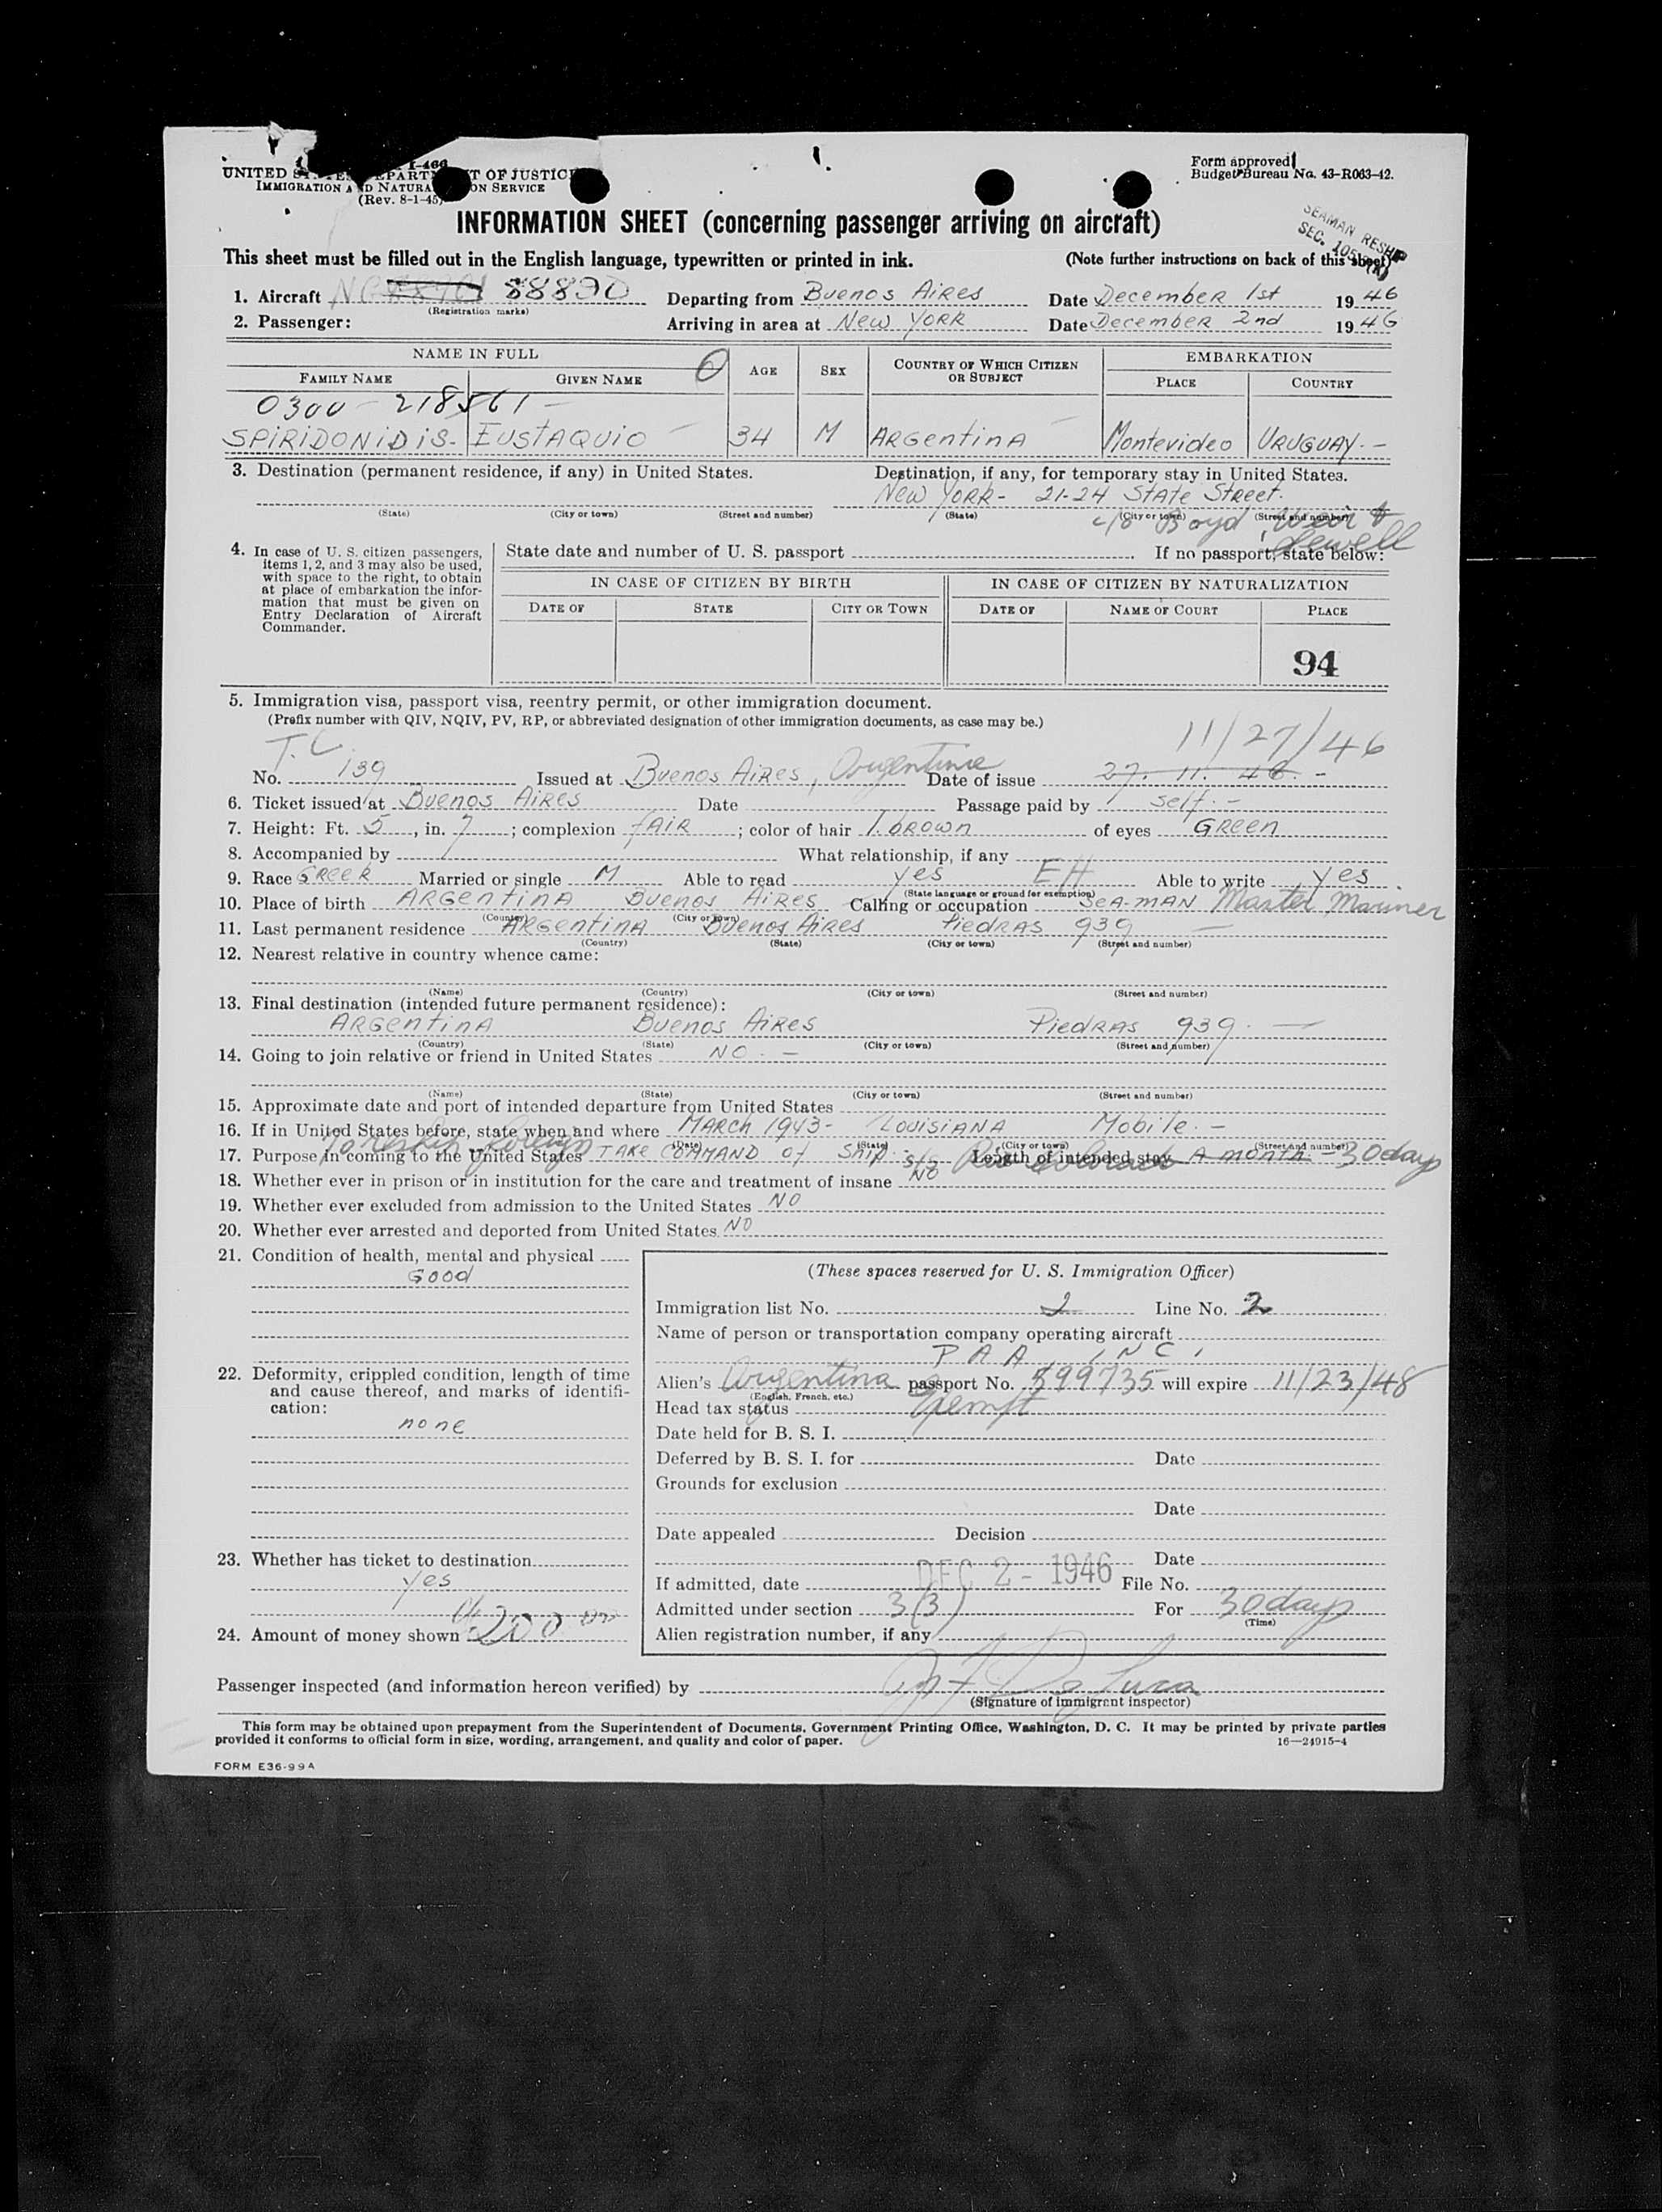 I-466
UNITED STATES DEPARTMENT OF JUSTICE
IMMIGRATION AND NATURALIZATION SERVICE
(Rev. 8-1-45)
Form approved
Budget Bureau No. 43-R063-42.
INFORMATION SHEET (concerning passenger arriving on aircraft)
SEAMAN RESHIP
SEC. 105
This sheet must be filled out in the English language, typewritten or printed in ink.
(Note further instructions on back of this sheet)
1. Aircraft NC 88890 Departing from Buenos Aires Date December 1st 1946
(Registration marks)
2. Passenger: Arriving in area at New York Date December 2nd 1946
NAME IN FULL 0 AGE SEX COUNTRY OF WHICH CITIZEN OR SUBJECT EMBARKATION
FAMILY NAME GIVEN NAME PLACE COUNTRY
0300 - 218561 -
SPIRIDONIDIS- EUSTAQUIO - 34 M ARGENTINA - Montevideo URUGUAY.-
3. Destination (permanent residence, if any) in United States. Destination, if any, for temporary stay in United States.
New York- 21-24 State Street.
(State) (City or town) (Street and number) (State) (City or town) (Street and number)
c/o Boyd Weir & Sewell
4. In case of U. S. citizen passengers, items 1, 2, and 3 may also be used, with space to the right, to obtain at place of embarkation the information that must be given on Entry Declaration of Aircraft Commander.
State date and number of U. S. passport If no passport, state below:
IN CASE OF CITIZEN BY BIRTH IN CASE OF CITIZEN BY NATURALIZATION
DATE OF STATE CITY OR TOWN DATE OF NAME OF COURT PLACE
94
5. Immigration visa, passport visa, reentry permit, or other immigration document.
(Prefix number with QIV, NQIV, PV, RP, or abbreviated designation of other immigration documents, as case may be.)
T.C. 11/27/46
No. 139 Issued at Buenos Aires, Argentine Date of issue 27. 11. 46. -
6. Ticket issued at Buenos Aires Date Passage paid by self.-
7. Height: Ft. 5, in. 7; complexion fair; color of hair l. brown of eyes Green
8. Accompanied by What relationship, if any
9. Race Greek Married or single M Able to read yes EH Able to write yes
(State language or ground for exemption)
10. Place of birth Argentina Buenos Aires Calling or occupation SEA-MAN Master Mariner
(Country) (City or town)
11. Last permanent residence Argentina Buenos Aires Piedras 939 -
(Country) (State) (City or town) (Street and number)
12. Nearest relative in country whence came:
(Name) (Country) (City or town) (Street and number)
13. Final destination (intended future permanent residence):
Argentina Buenos Aires Piedras 939. -
(Country) (State) (City or town) (Street and number)
14. Going to join relative or friend in United States NO. -
(Name) (State) (City or town) (Street and number)
15. Approximate date and port of intended departure from United States
16. If in United States before, state when and where MARCH 1943- LOUISIANA Mobile.-
(Date) (State) (City or town) (Street and number)
To reship foreign
17. Purpose in coming to the United States TAKE COMMAND of Ship. S/S Length of intended stay A month. - 30 days
18. Whether ever in prison or in institution for the care and treatment of insane NO
19. Whether ever excluded from admission to the United States NO
20. Whether ever arrested and deported from United States NO
21. Condition of health, mental and physical
Good
22. Deformity, crippled condition, length of time and cause thereof, and marks of identification:
none
23. Whether has ticket to destination
yes
24. Amount of money shown 200 00
(These spaces reserved for U. S. Immigration Officer)
Immigration list No. 2 Line No. 2
Name of person or transportation company operating aircraft
PAA INC.
Alien's Argentina passport No. 599735 will expire 11/23/48
(English, French, etc.)
Head tax status Exempt
Date held for B. S. I.
Deferred by B. S. I. for Date
Grounds for exclusion
Date
Date appealed Decision
Date
If admitted, date DEC 2 - 1946 File No.
Admitted under section 3(3) For 30 days
(Time)
Alien registration number, if any
Passenger inspected (and information hereon verified) by De Luca
(Signature of immigrant inspector)
This form may be obtained upon prepayment from the Superintendent of Documents, Government Printing Office, Washington, D. C. It may be printed by private parties
provided it conforms to official form in size, wording, arrangement, and quality and color of paper. 16—24915-4
FORM E36-99A